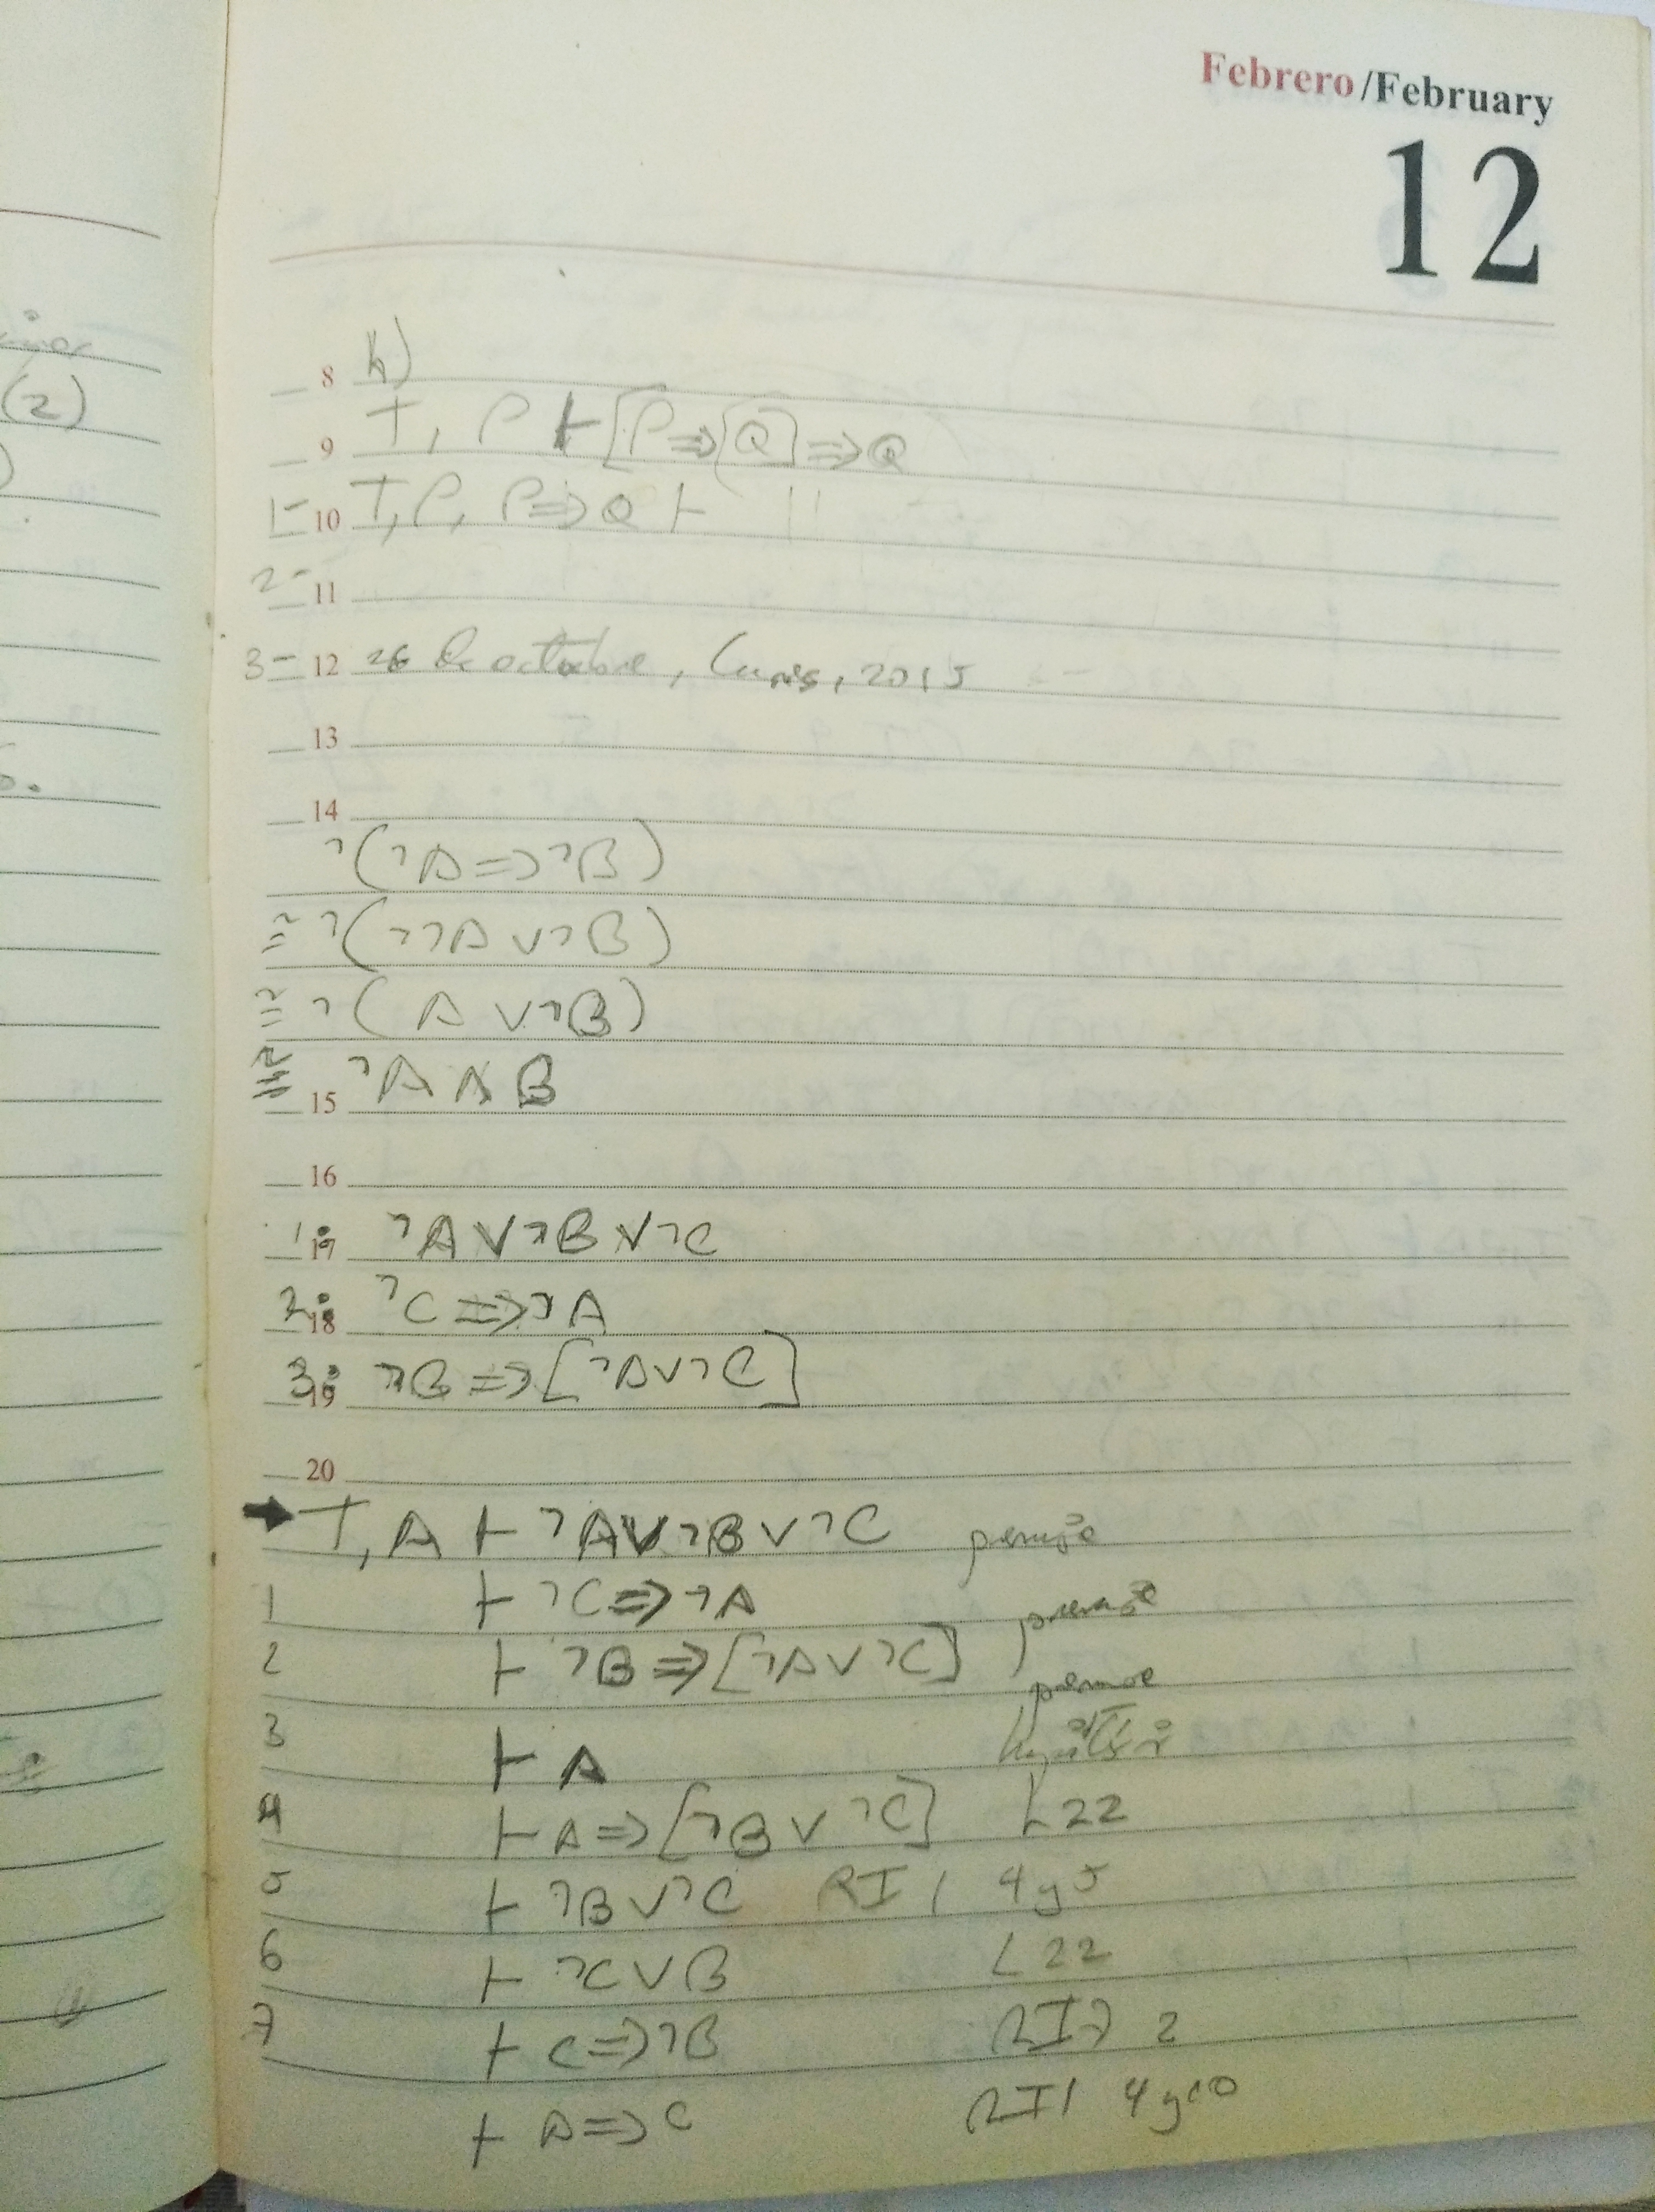 Febrero/February
12
(2)
8 h)
9 T, P ⊢ [P ⇒ [Q] ⇒ Q
1- 10 T, P, P ⇒ Q ⊢ "
2- 11
3- 12 26 de octubre, lunes, 2015
13
14
¬(¬A ⇒ ¬B)
≡ ¬(¬¬A ∨ ¬B)
≡ ¬( A ∨ ¬B)
≡ 15 ¬A ∧ B
16
1: 17 ¬A ∨ ¬B ∨ ¬C
2: 18 ¬C ⇒ ¬A
3: 19 ¬B ⇒ [¬A ∨ ¬C]
20
→ T, A ⊢ ¬A ∨ ¬B ∨ ¬C premisa
1 ⊢ ¬C ⇒ ¬A premisa
2 ⊢ ¬B ⇒ [¬A ∨ ¬C] premisa
3 ⊢ A hipótesis
4 ⊢ A ⇒ [¬B ∨ ¬C] L22
5 ⊢ ¬B ∨ ¬C RI1 4 y 5
6 ⊢ ¬C ∨ B L22
7 ⊢ C ⇒ ¬B RI7 2
⊢ A ⇒ C RI1 4 y 10